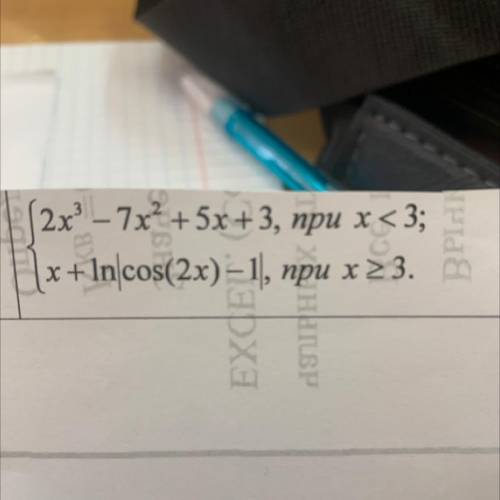 2x³ – 7x² + 5x + 3, при x < 3;
x + ln|cos(2x) – 1|, при x ≥ 3.